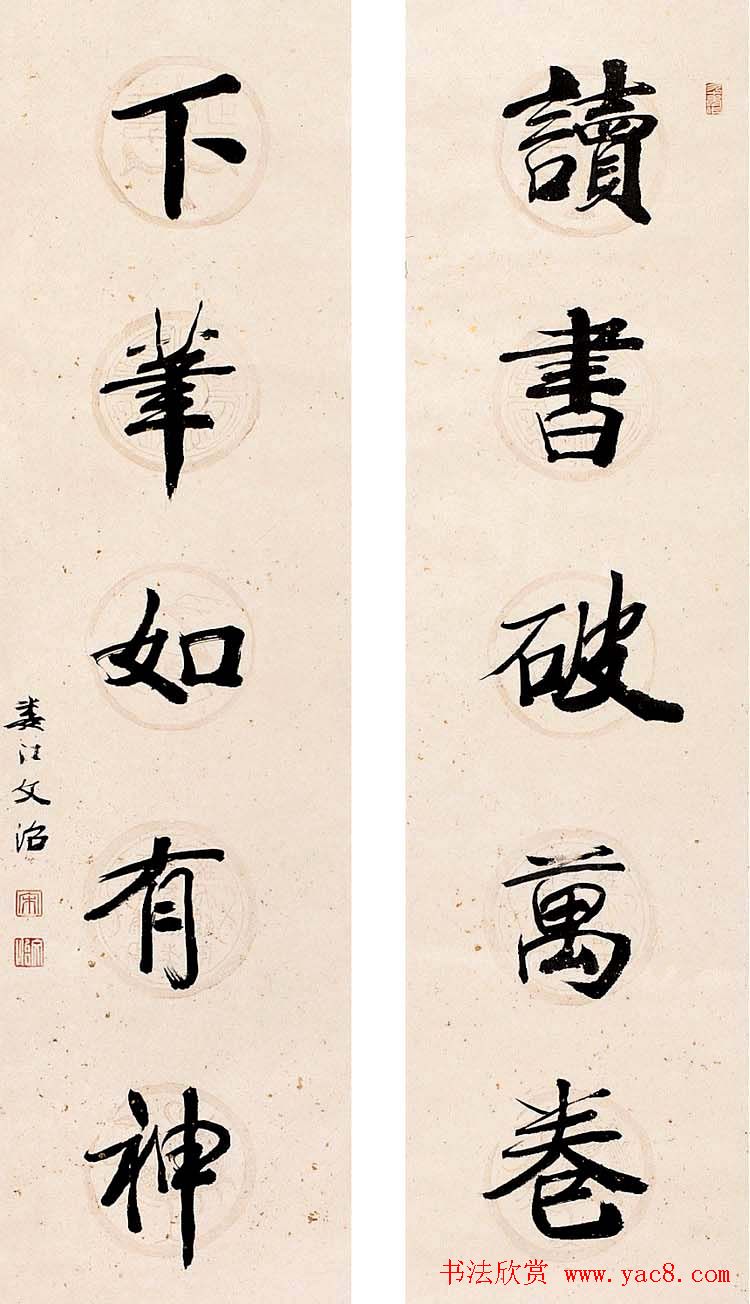 讀書破萬卷
下筆如有神
婁江文治
书法欣赏 www.yac8.com